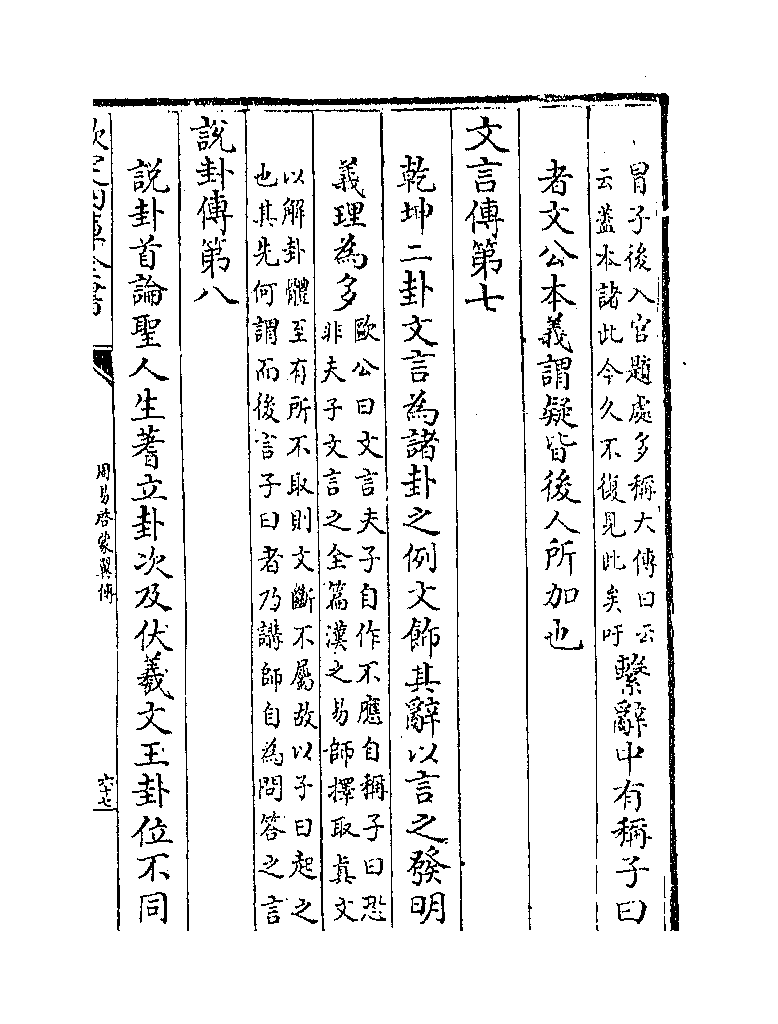 冑子後入官題處多稱大傳曰云
云蓋本諸此今久不復見此矣吁
繫辭中有稱子曰
者文公本義謂疑皆後人所加也
文言傳第七
乾坤二卦文言為諸卦之例文飾其辭以言之發明
義理為多
歐公曰文言夫子自作不應自稱子曰恐
非夫子文言之全篇漢之易師擇取其文
以解卦體至有所不取則文斷不屬故以子曰起之
也其先何謂而後言子曰者乃講師自為問答之言
說卦傳第八
說卦首論聖人生蓍立卦次及伏羲文王卦位不同
欽定四庫全書
周易啓蒙翼傳
六十七